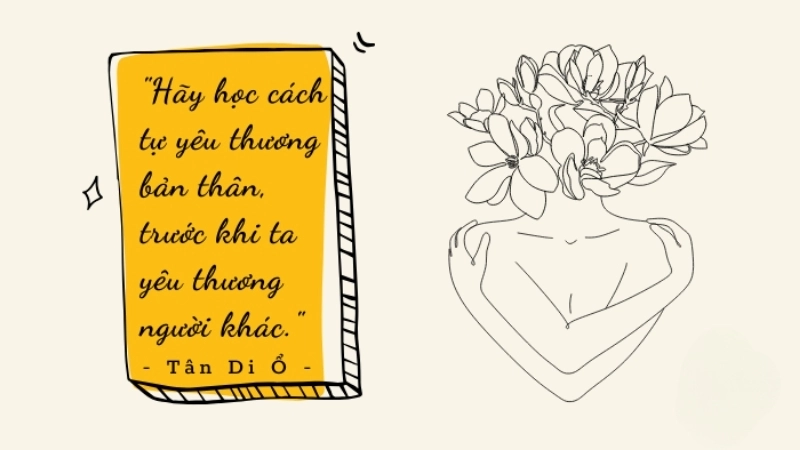 "Hãy học cách
tự yêu thương
bản thân,
trước khi ta
yêu thương
người khác."
- Tân Di Ổ -